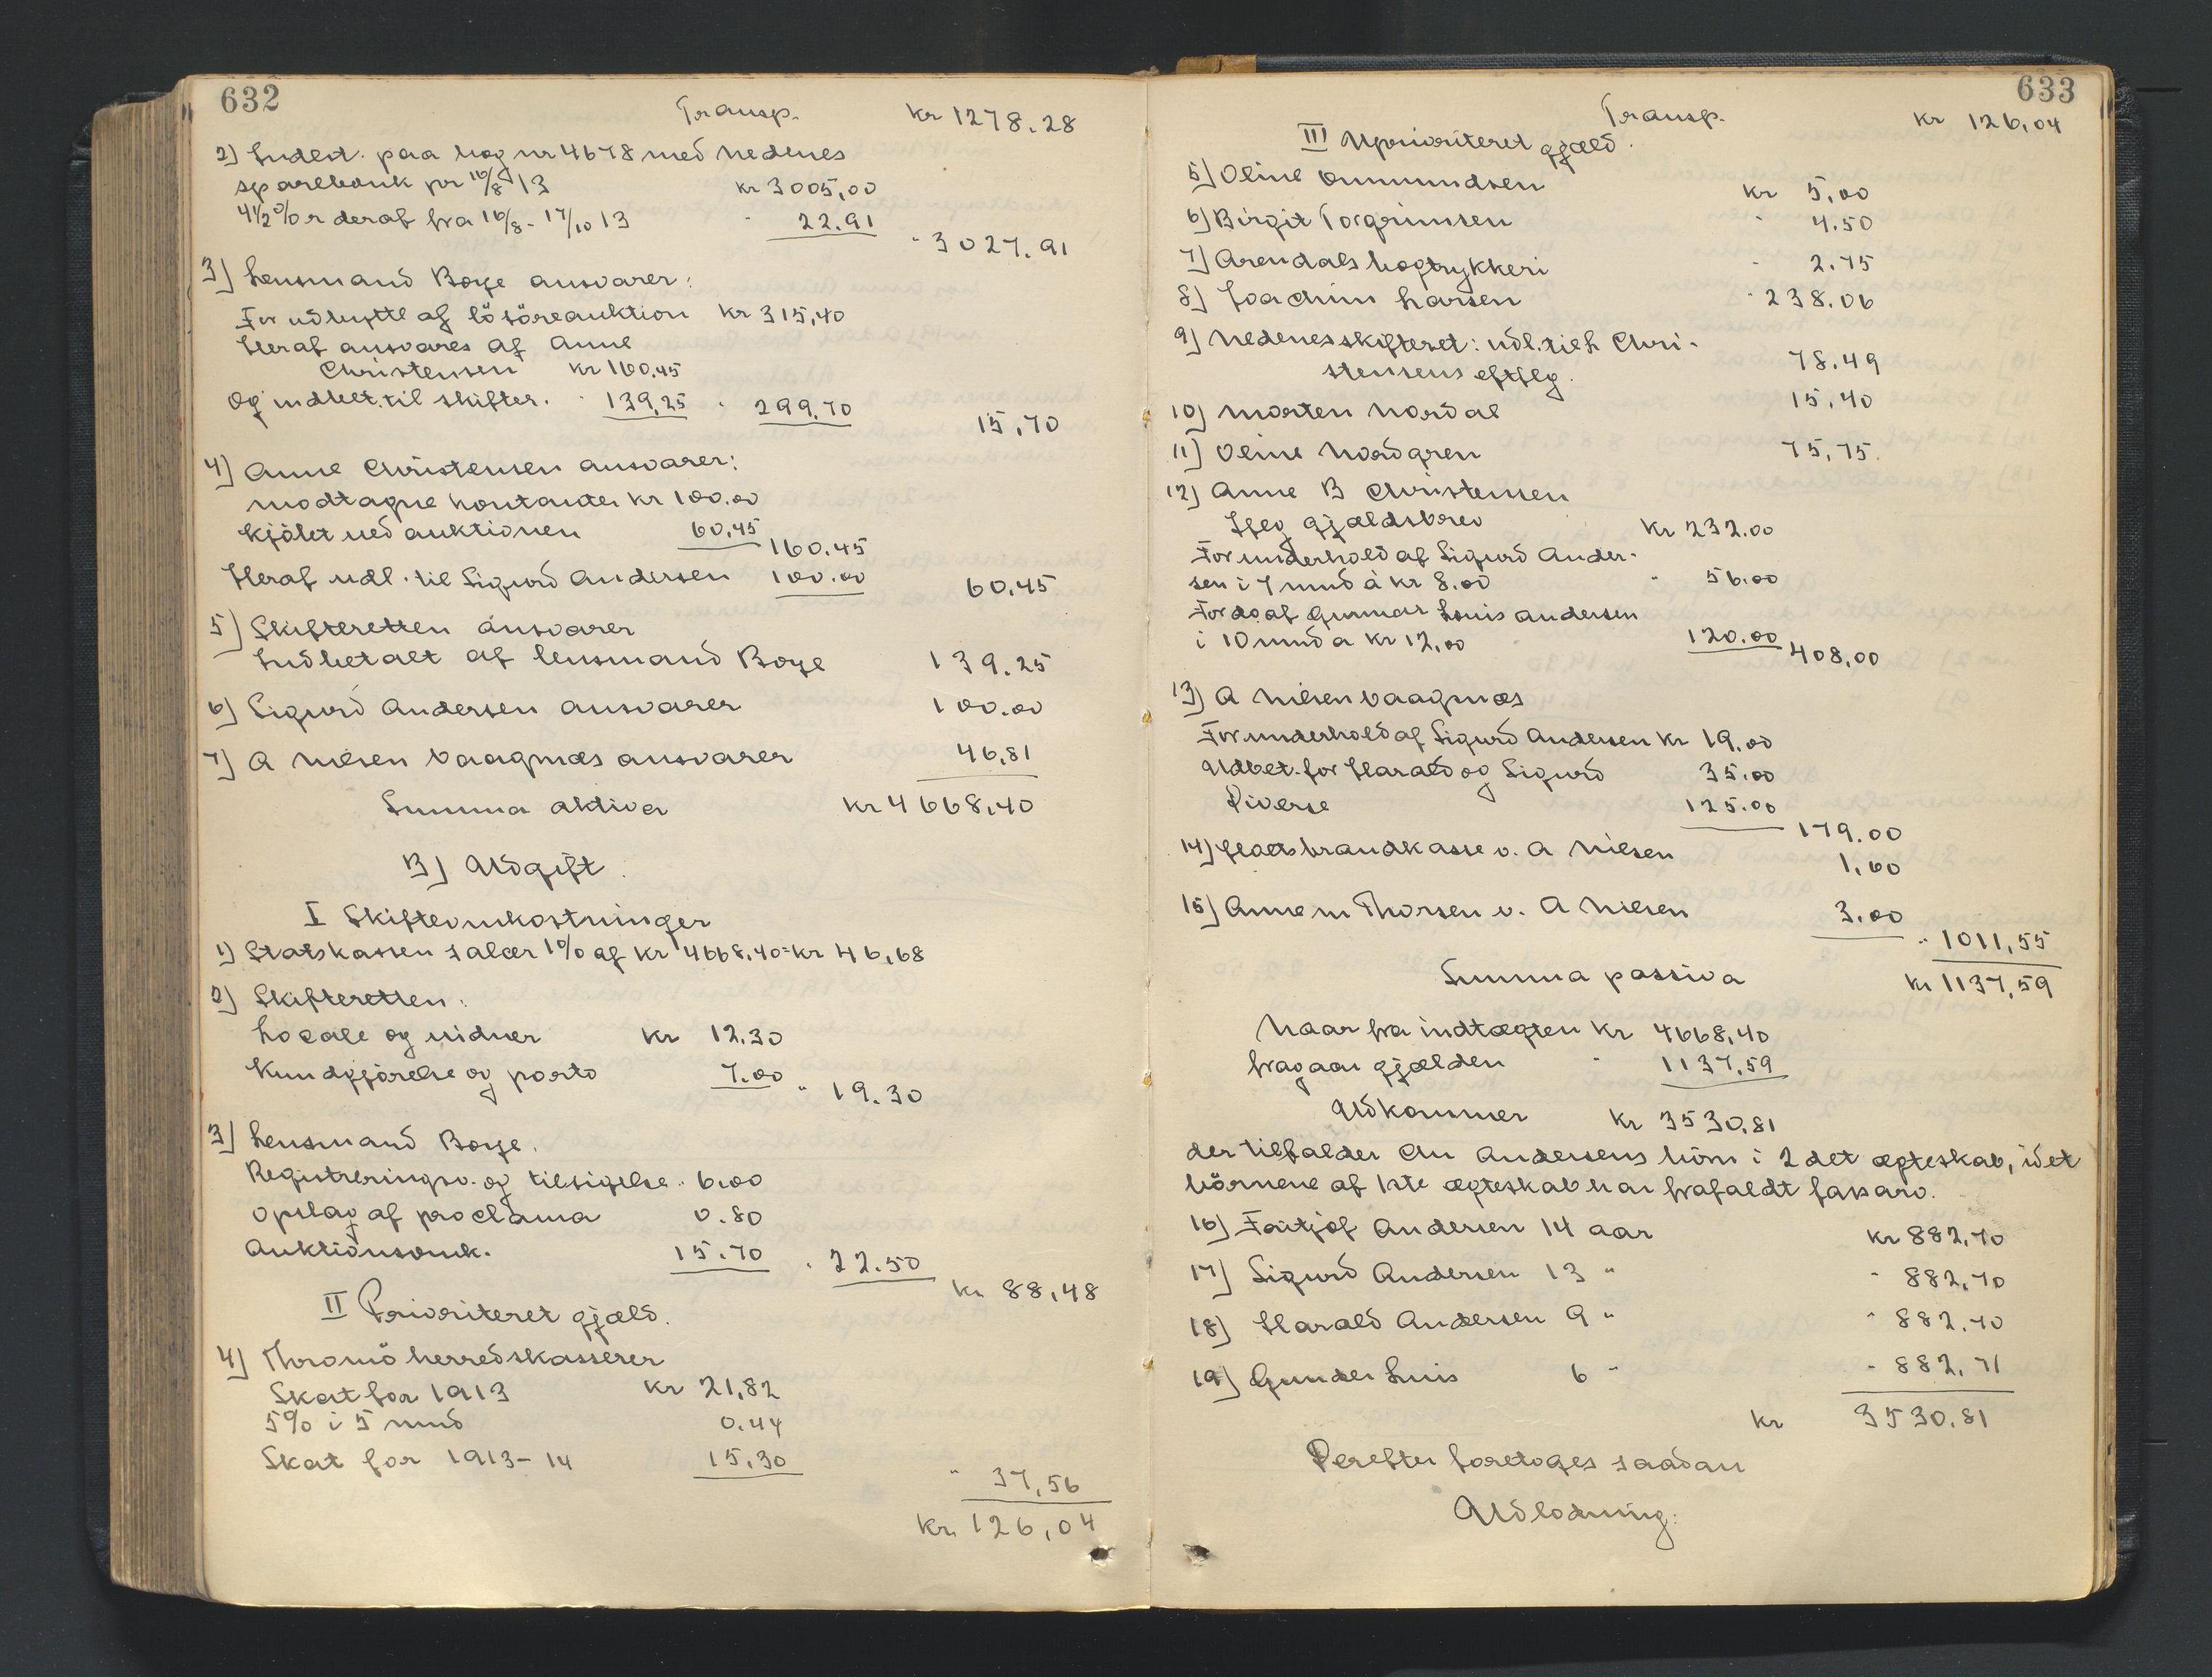 632
Transp. kr 1278.28
2) Indest. paa bog nr 4678 med Nedenes
sparebank pr 16/8 13 kr 3005,00
4 1/2 % r deraf fra 16/8 - 17/10 13 " 22.91
" 3027.91
3) Lensmand Boye ansvarer:
For udbytte af lösöreauktion kr 315,40
Heraf ansvares af Anne
Christensen kr 160.45
og indbet. til skifter. " 139,25 " 299.70
15,70
4) Anne Christensen ansvarer:
modtagne kontanter kr 100.00
kjöbt ved auktionen 60.45
160.45
Heraf udl. til Sigurd Andersen 100.00 60.45
5) Skifteretten ansvarer
Indbetalt af lensmand Boye 139.25
6) Sigurd Andersen ansvarer 100.00
7) A Nilsen Vaagnæs ansvarer 46,81
Summa aktiva kr 4668,40
B) Udgift.
I Skifteomkostninger
1) Statskassen salær 1% af kr 4668,40 = kr 46,68
2) Skifteretten:
Locale og vidner kr 12.30
Kundgjörelse og porto 7.00 " 19.30
3) Lensmand Boye.
Registreringsv. og tilsigelse " 6.00
Opslag af proclama 0.80
Auktionsomk. 15.70 " 22.50
kr 88,48
II Prioriteret gjæld.
4) Thromö herredskasserer
Skat for 1913 kr 21,82
5% i 5 mnd 0.44
Skat for 1913-14 15,30
" 37,56
kr. 126,04
633
Transp. kr 126,04
III Uprioriteret gjæld.
5) Oline Ommundsen kr 5,00
6) Birgit Torgrimsen " 4.50
7) Arendals bogtrykkeri " 2.75
8) Joachim Larsen " 238.06
9) Nedenes skifteret: udl. til H. Chri-
stensens eftflg. 78.49
10) Morten Nordal 15,40
11) Oline Nordgren 75,75.
12) Anne B Christensen
Iflg gjældsbrev kr 232.00
For underhold af Sigurd Ander-
sen i 7 mnd à kr 8.00 " 56.00
For do af Gunnar Louis Andersen
i 10 mnd a kr 12,00 120.00
408,00
13) A Nilsen Vaagnæs
For underhold af Sigurd Andersen kr 19.00
Udbet. for Harald og Sigurd 35.00
Diverse 125.00
179.00
14) brandkasse v. A Nilsen 1,60
15) Anne M Thorsen v. A Nilsen 3.00
" 1011,55
Summa passiva kr 1137,59
Naar fra indtægten kr 4668,40
fragaar gjælden " 1137.59
Udkommer kr 3530.81
der tilfalder Chr Andersens börn i 2 det ægteskab, idet
börnene af 1ste ægteskab har frafaldt farsarv.
16) Fritjof Andersen 14 aar kr 882,70
17) Sigurd Andersen 13 " " 882,70
18) Harald Andersen 9 " " 882.70
19) Gunder Luis 6 " " 882,71
kr 3530.81
Derefter foretoges saadan
Udlodning: